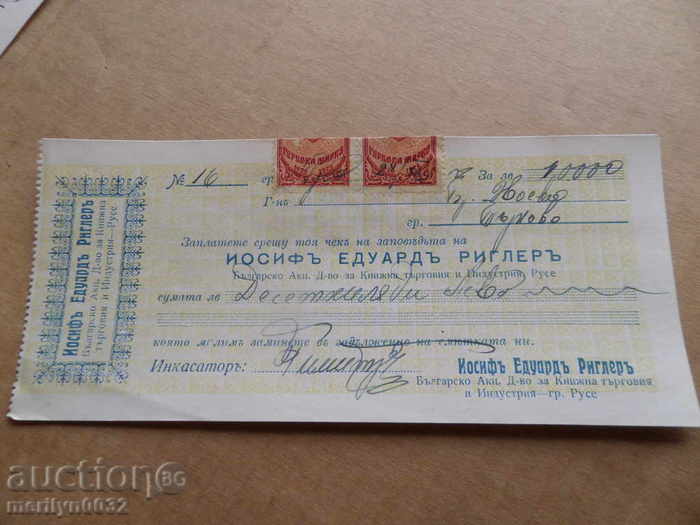 № 16 гр. За лв. 10000
ГЕРБОВА МАРКА ГЕРБОВА МАРКА
Г-нъ
гр. Търново
Заплатете срещу тоя чекъ на заповѣдьта на
ИОСИФЪ ЕДУАРДЪ РИГЛЕРЪ
Българско Акц. Д-во за Книжна търговия и Индустрия, Русе
сумата лв Десетхиляди лева
която молимъ заминете въ задължение на смѣтката ни.
Инкасаторъ:
Иосифъ Едуардъ Риглеръ
Българско Акц. Д-во за Книжна търговия
и Индустрия—гр. Русе
Иосифъ Едуардъ Риглеръ
Българско Акц. Д-во за Книжна
търговия и Индустрия—Русе
auction BG
merilyn0032